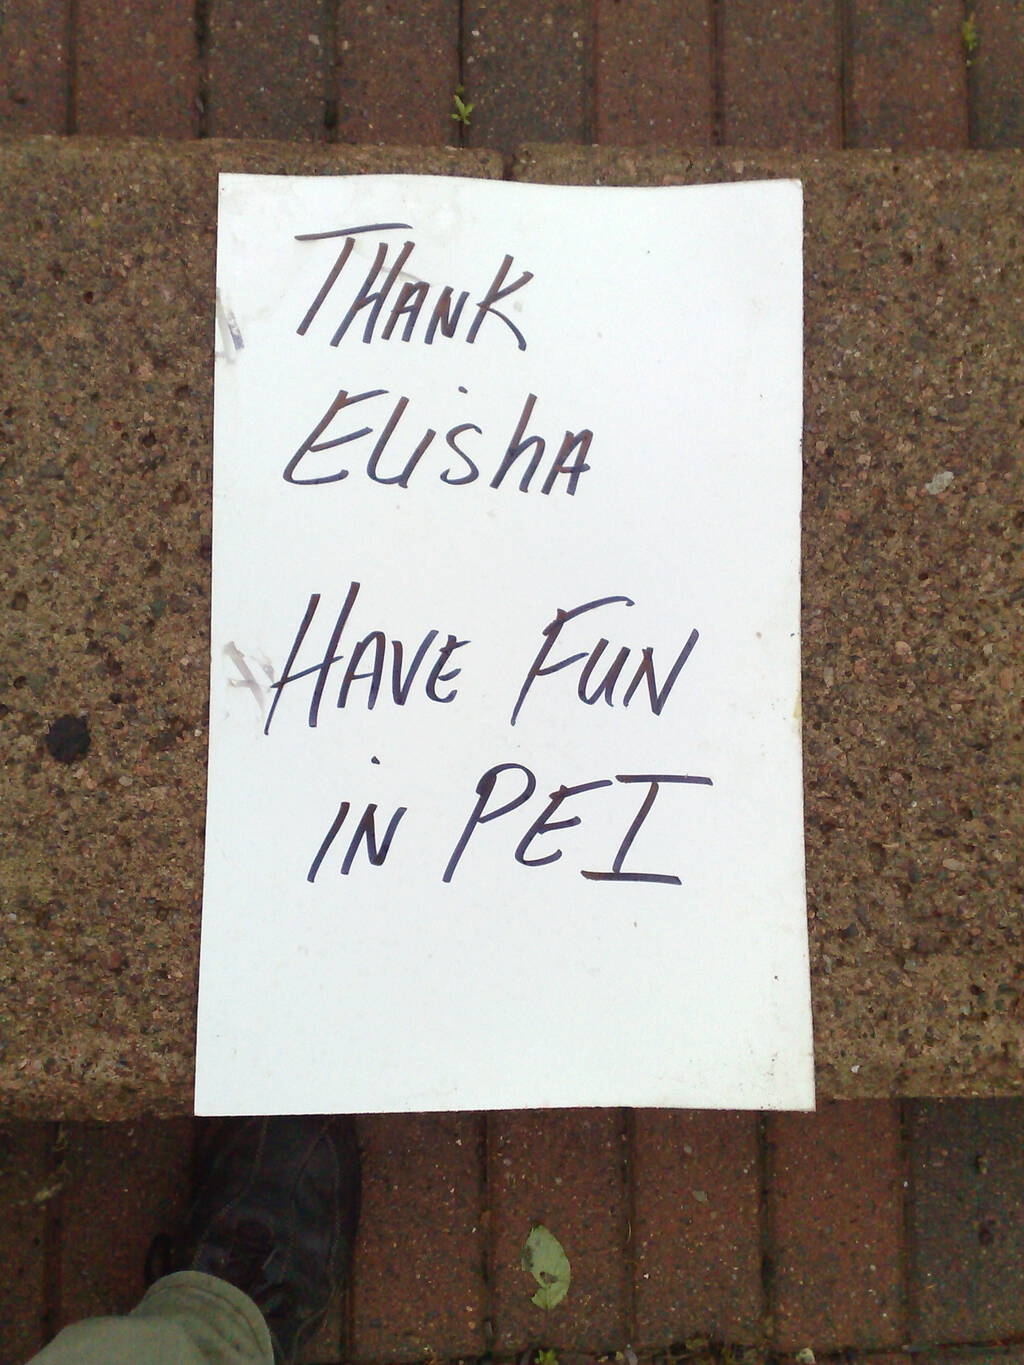 THANK
ElishA
HAVE FUN
iN PEI